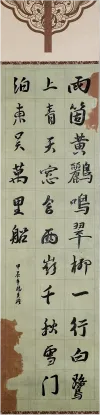 兩箇黃鸝鳴翠柳一行白鷺
上青天窓含西嶺千秋雪门
泊東吳萬里船